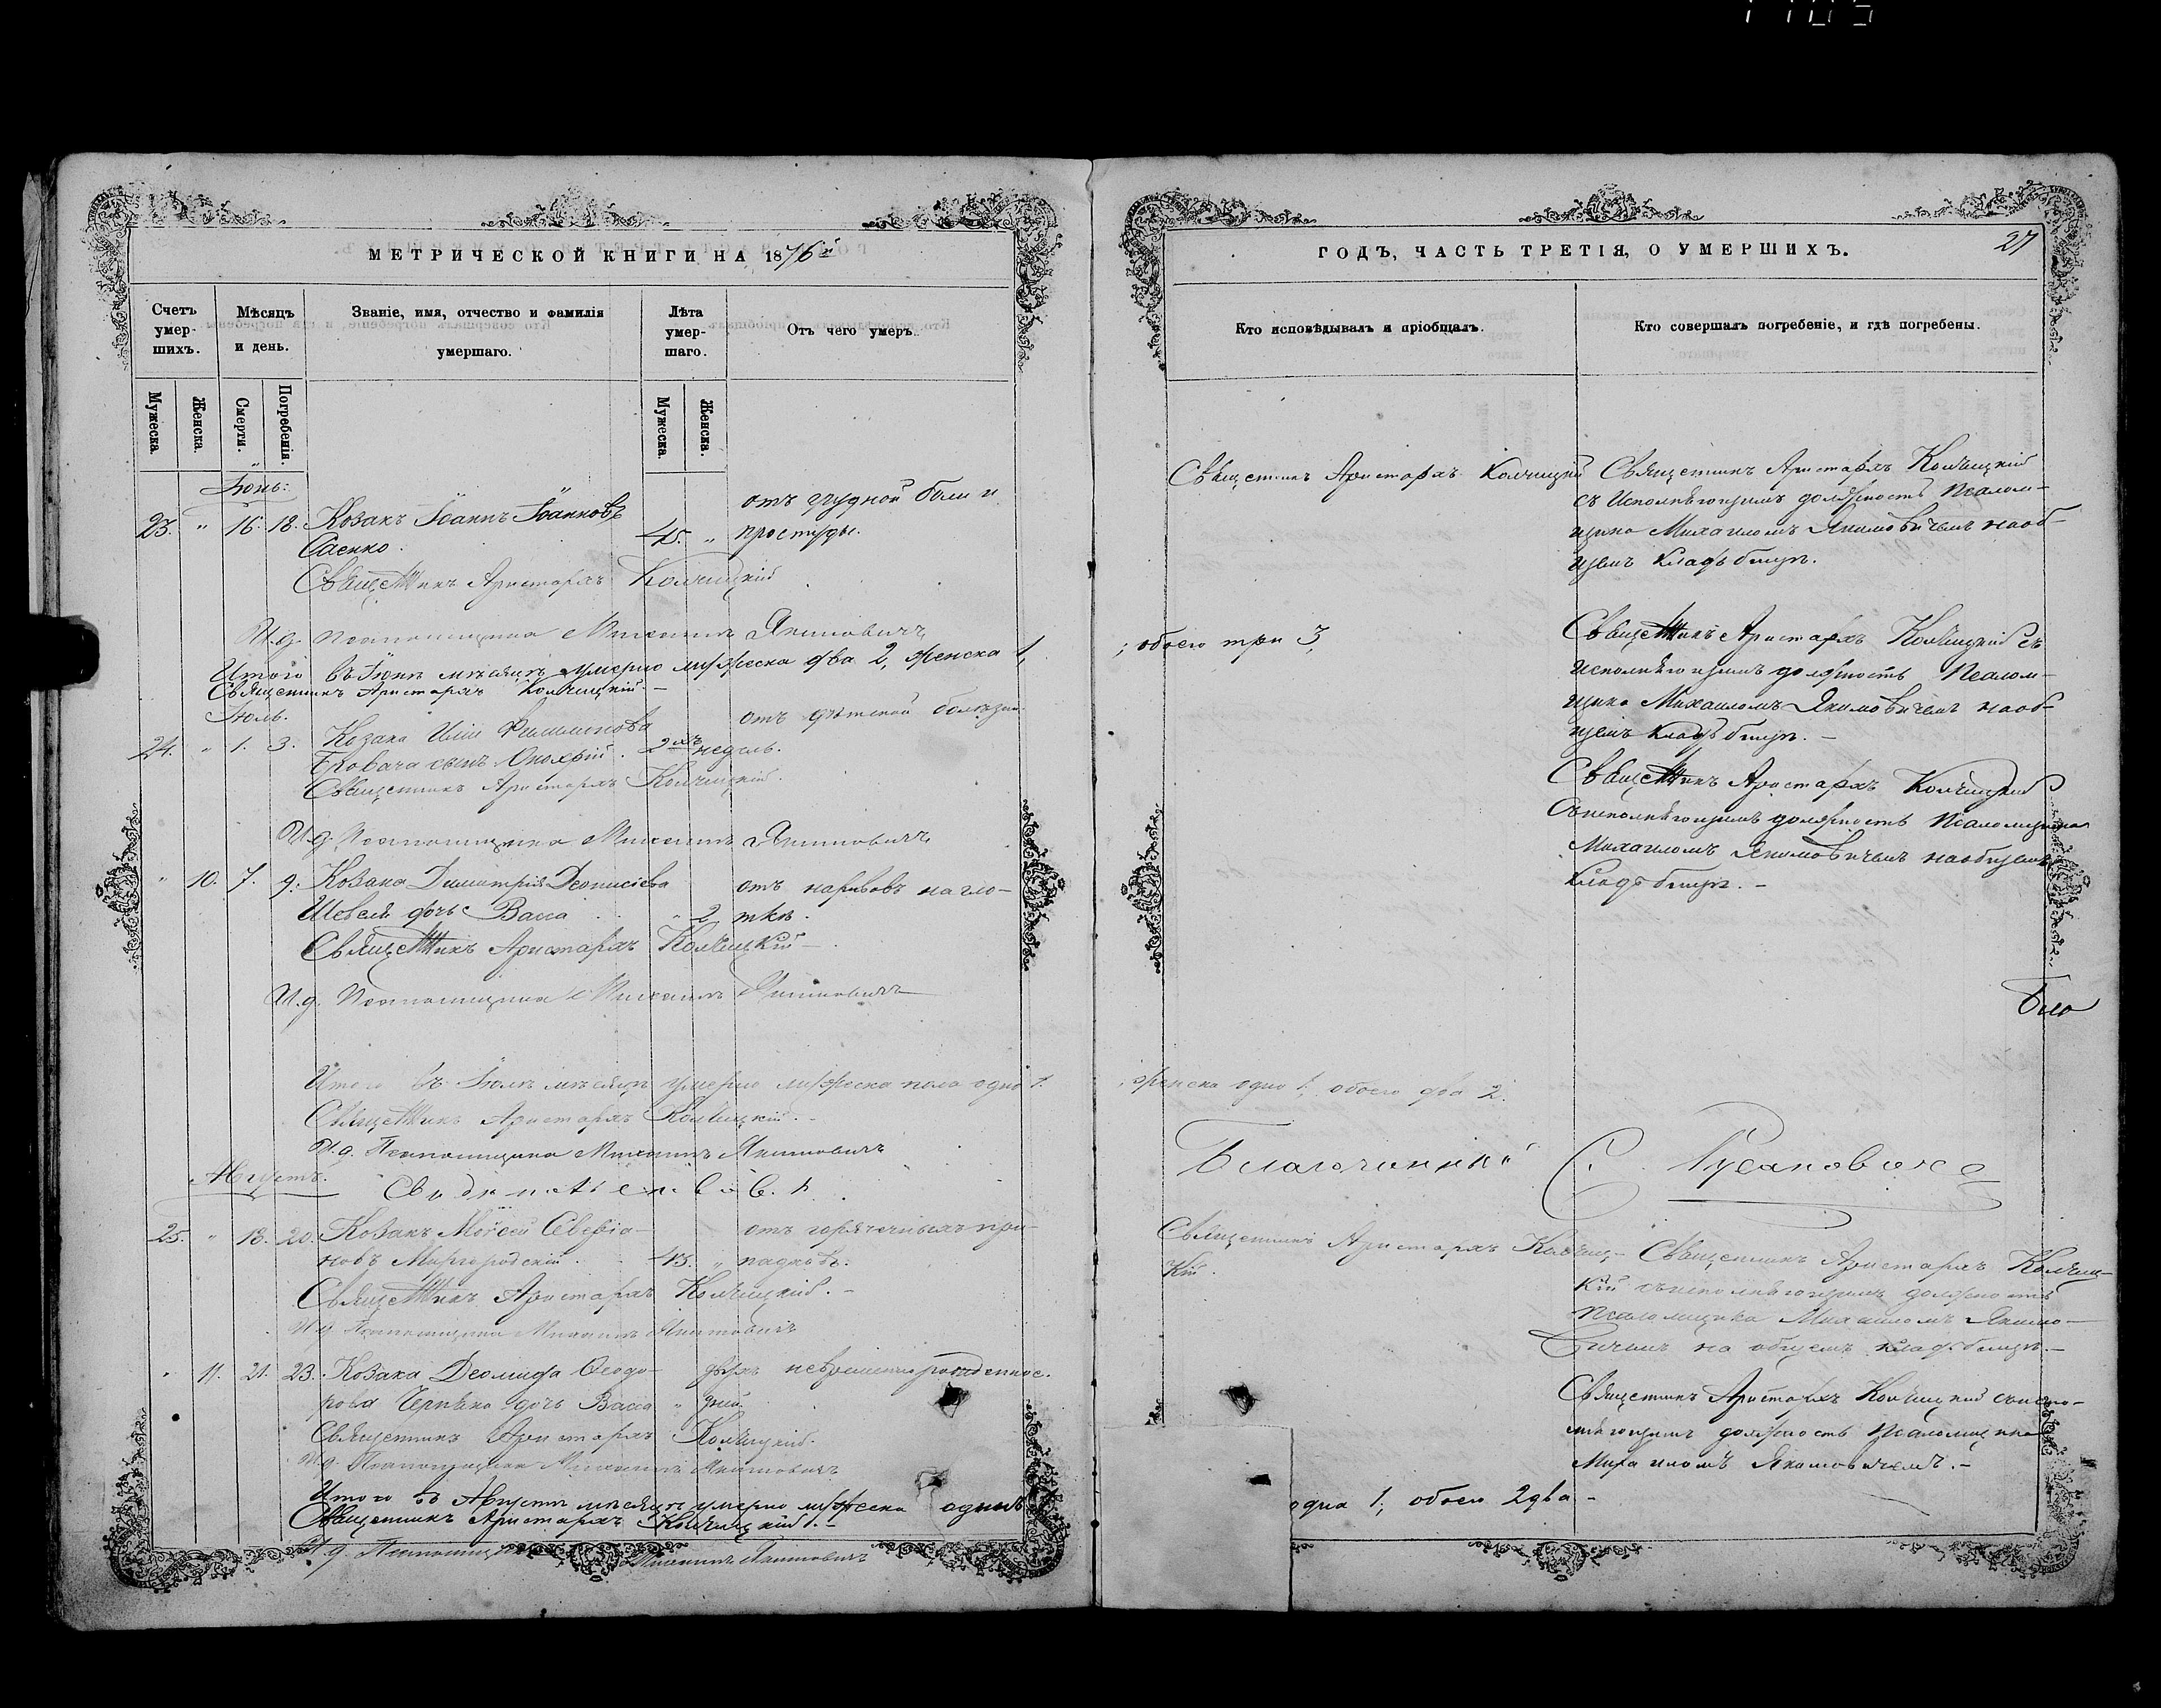 МЕТРИЧЕСКОЙ КНИГИ НА 1876й
Счетъ умер-шихъ.
Мѣсяцъ и день.
Званіе, имя, отчество и фамилія умершаго.
Лѣта умер-шаго.
Отъ чего умеръ.
Мужеска.
Женска.
Смерти.
Погребенія.
Мужеска.
Женска.
Іюнь:
23. " 16. 18. Козакъ Іоаннъ Іоанновъ 45. " отъ грудной боли и
Саенко. простуды.
Священникъ Аристархъ Колчицкій
И.д. Псаломщика Михаилъ Якимовичъ
Итого въ Іюнѣ мѣсяцѣ умерло мужеска два 2, женска 1,
Священникъ Аристархъ Колчицкій.-
Іюль.
24. " 1. 3. Козака Иліи Филиппова отъ дѣтской болѣзни.
сынъ Онуфрій. 2хъ недѣль.
Священникъ Аристархъ Колчицкій.
И.д. Псаломщика Михаилъ Якимовичъ
" 10. 7. 9. Козака Димитрія Діонисіева отъ нарывовъ на гло-
Шевеля дочь Васса " 2 ткѣ.
Священникъ Аристархъ Колчицкій-
И.д. Псаломщика Михаилъ Якимовичъ
Итого въ Іюлѣ мѣсяцѣ умерло мужеска пола одно 1.
Священникъ Аристархъ Колчицкій.-
И.д. Псаломщика Михаилъ Якимовичъ
Августъ.
25. " 18. 20. Козакъ Мойсей Севері- отъ горячечныхъ при-
новъ Миргородскій. 43. " падковъ.
Священникъ Аристархъ Колчицкій.-
И.д. Псаломщика Михаилъ Якимовичъ
" 11. 21. 23. Козака Деомида Ѳеодо- двухъ невременно рожденное.
рова дочь Васса " дней.
Священникъ Аристархъ Колчицкій.
И.д. Псаломщика Михаилъ Якимовичъ
Итого въ Августѣ мѣсяцѣ умерло мужеска одинъ
Священникъ Аристархъ Колчицкій.-
И.д. Михаилъ Якимовичъ
ГОДЪ, ЧАСТЬ ТРЕТІЯ, О УМЕРШИХЪ.
27
Кто исповѣдывалъ и пріобщалъ.
Кто совершалъ погребеніе, и гдѣ погребены.
Священникъ Аристархъ Колчицкій
Священникъ Аристархъ Колчицкій
съ исполняющимъ должность Псалом-
щика Михаиломъ Якимовичемъ на об-
щемъ кладбищѣ.
; обоего три 3,
Священникъ Аристархъ Колчицкій съ
исполняющимъ должность Псалом-
щика Михаиломъ Якимовичемъ на об-
щемъ кладбищѣ.-
Священникъ Аристархъ Колчицкій
съ исполняющимъ должность Псаломщика
Михаиломъ Якимовичемъ на общемъ
кладбищѣ.-
женска одно 1; обоего два 2.
Благочинный С. Русановичъ
Священникъ Аристархъ Колчиц-
кій.
Священникъ Аристархъ Колчиц-
кій съ исполняющимъ должность
Псаломщика Михаиломъ Якимо-
вичемъ на общемъ кладбищѣ.-
Священникъ Аристархъ Колчицкій съ испол-
няющимъ должность Псаломщика
Михаиломъ Якимовичемъ.-
одна 1; обоего 2 два-